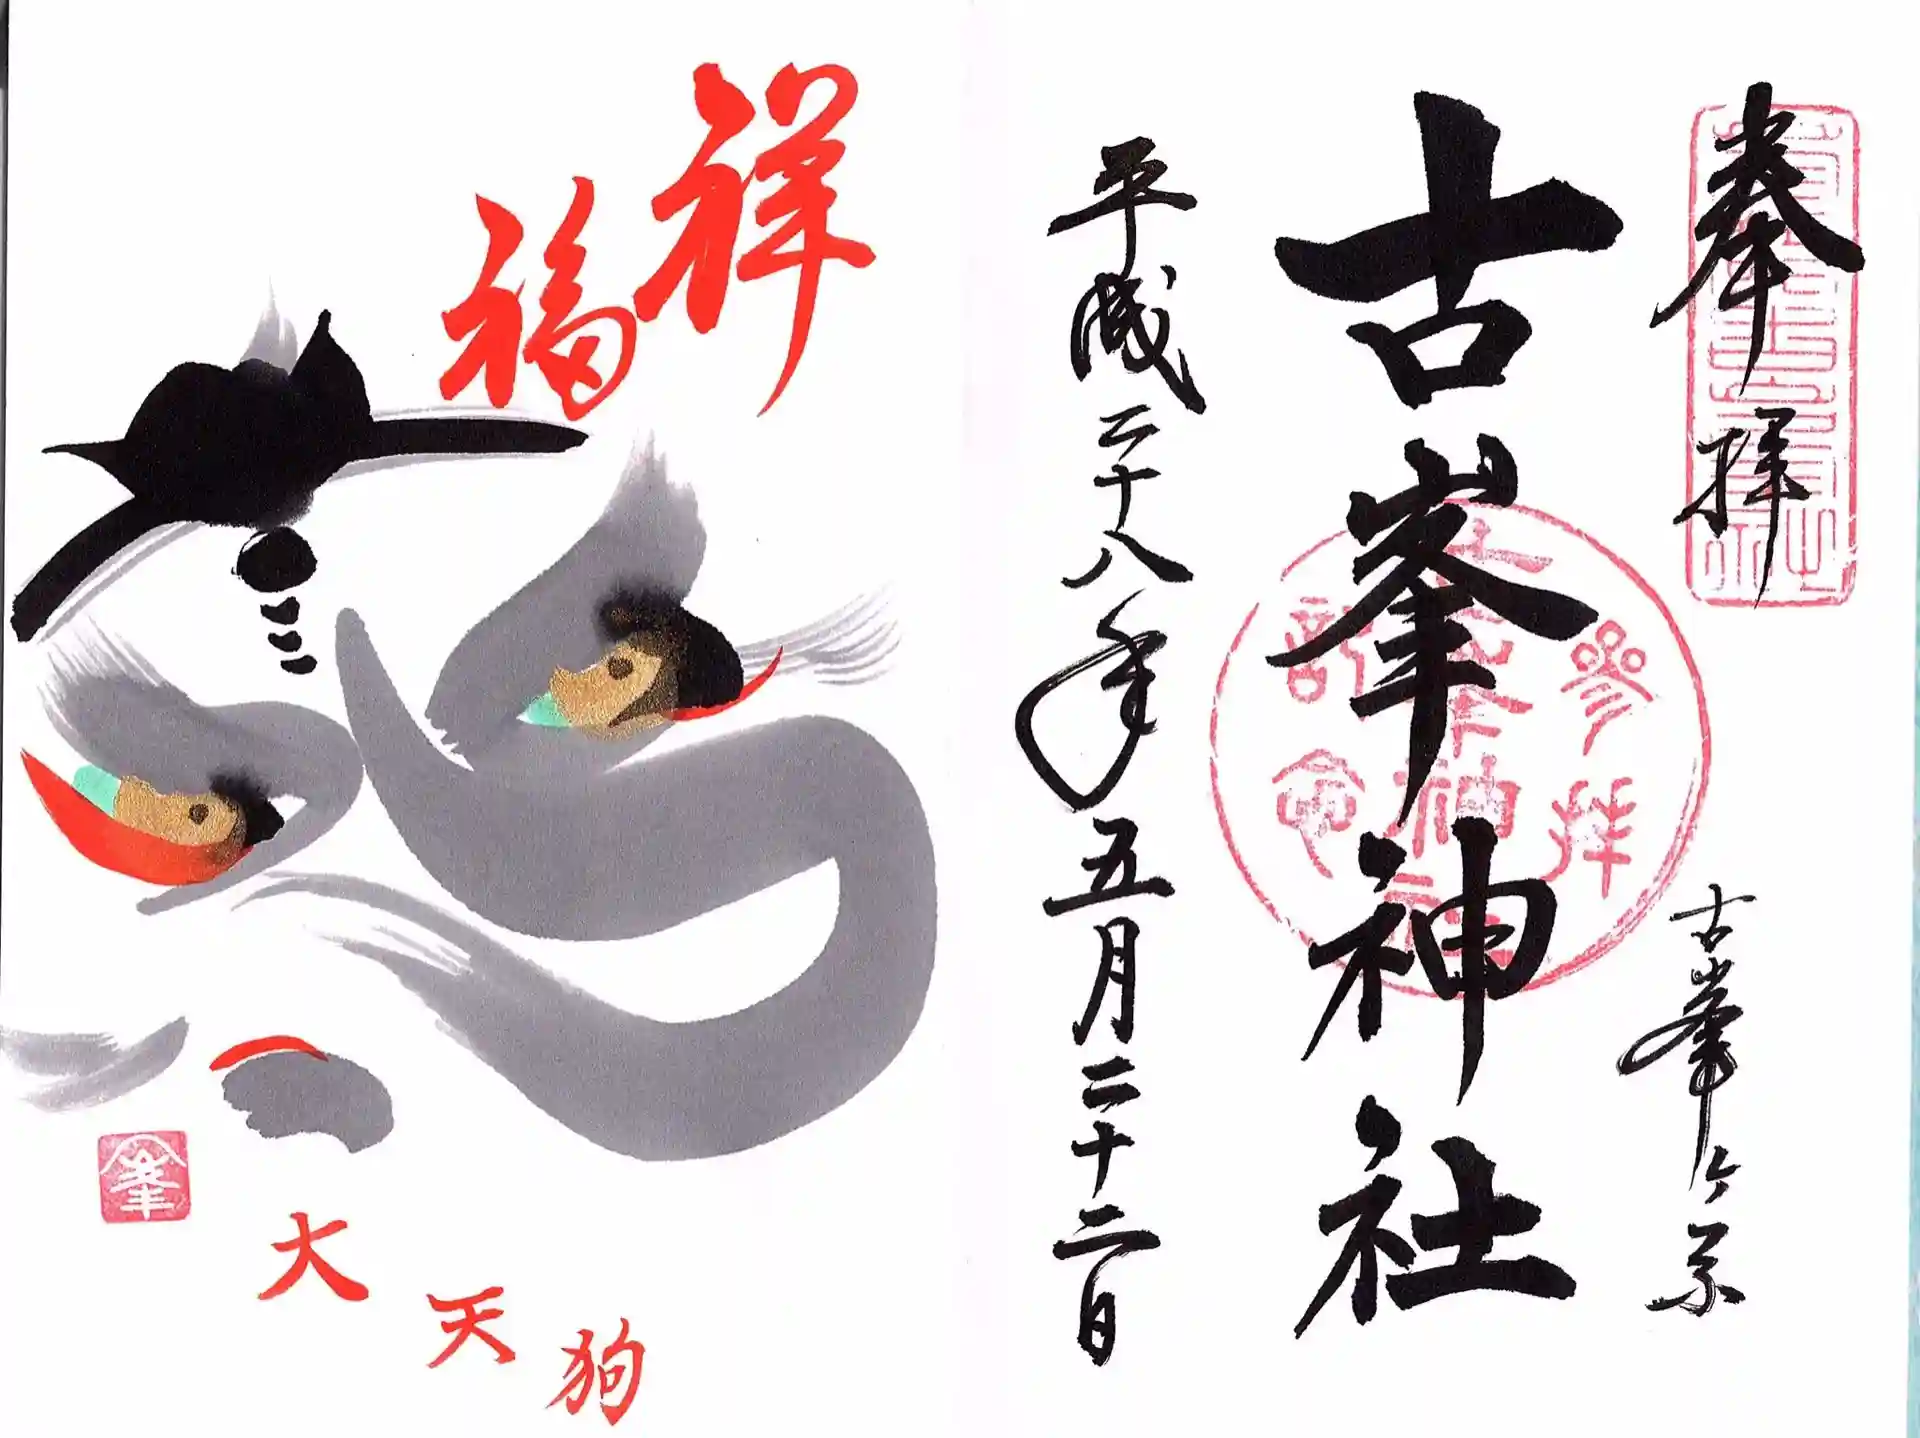 奉拝
古峯ヶ原
古峯神社
平成二十八年五月二十二日
祥福
大天狗
峯
参拝記念